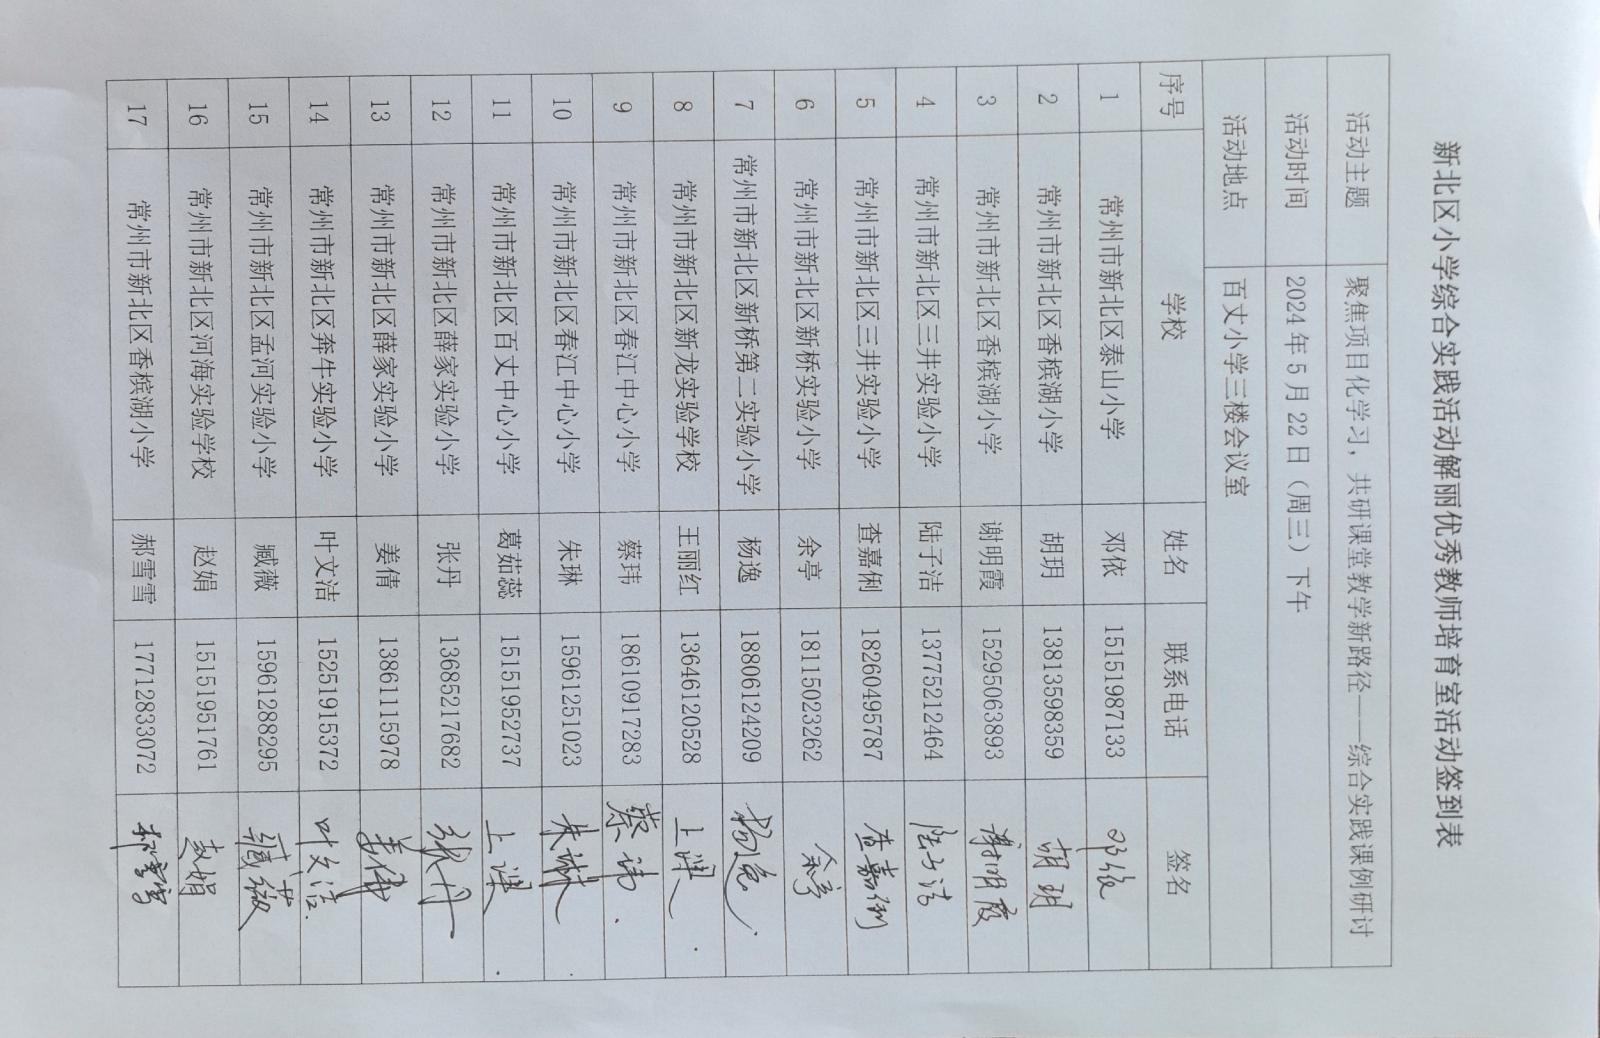 新北区小学综合实践活动解丽优秀教师培育室活动签到表
活动主题 聚焦项目化学习，共研课堂教学新路径——综合实践课例研讨
活动时间 2024年5月22日（周三）下午
活动地点 百丈小学三楼会议室
序号 学校 姓名 联系电话 签名
1 常州市新北区泰山小学 邓依 15151987133 邓依
2 常州市新北区香槟湖小学 胡玥 13813598359 胡玥
3 常州市新北区香槟湖小学 谢明霞 15295063893 谢明霞
4 常州市新北区三井实验小学 陆子洁 13775212464 陆子洁
5 常州市新北区三井实验小学 查嘉俐 18260495787 查嘉俐
6 常州市新北区新桥实验小学 余亭 18115023262 余亭
7 常州市新北区新桥第二实验小学 杨逸 18806124209 杨逸
8 常州市新北区新龙实验学校 王丽红 13646120528 上课
9 常州市新北区春江中心小学 蔡玮 18610917283 蔡玮
10 常州市新北区春江中心小学 朱琳 15961251023 朱琳
11 常州市新北区百丈中心小学 葛茹蕊 15151952737 上课
12 常州市新北区薛家实验小学 张丹 13685217682 张丹
13 常州市新北区薛家实验小学 姜倩 13861115978 姜倩
14 常州市新北区奔牛实验小学 叶文洁 15251915372 叶文洁
15 常州市新北区孟河实验小学 臧薇 15961288295 臧薇
16 常州市新北区河海实验学校 赵娟 15151951761 赵娟
17 常州市新北区香槟湖小学 郝雪雪 17712833072 郝雪雪